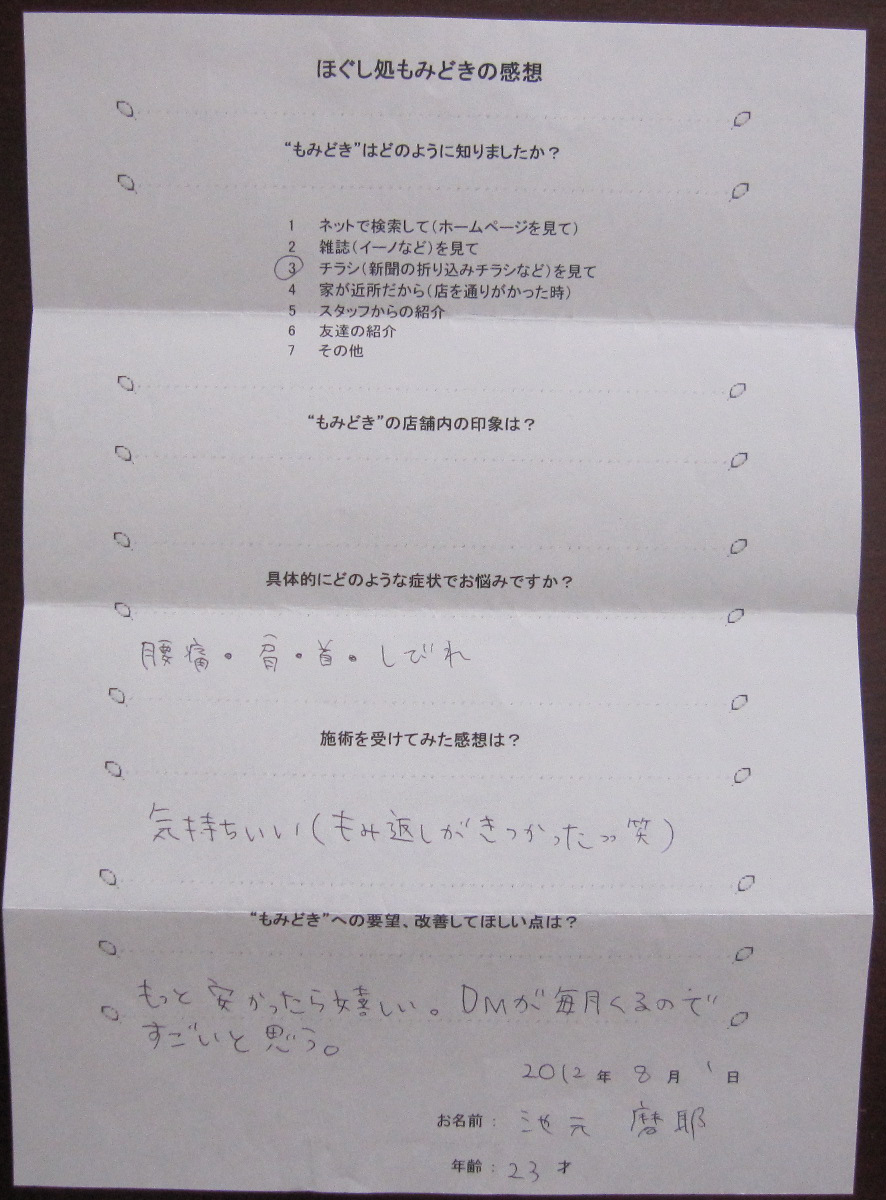 ほぐし処もみどきの感想
“もみどき”はどのように知りましたか？
1 ネットで検索して（ホームページを見て）
2 雑誌（イーノなど）を見て
3 チラシ（新聞の折り込みチラシなど）を見て
4 家が近所だから（店を通りがかった時）
5 スタッフからの紹介
6 友達の紹介
7 その他
“もみどき”の店舗内の印象は？
具体的にどのような症状でお悩みですか？
腰痛・肩・首・しびれ
施術を受けてみた感想は？
気持ちいい（もみ返しがきつかったっっ笑）
“もみどき”への要望、改善してほしい点は？
もっと安かったら嬉しい。DMが毎月くるので
すごいと思う。
2012年 8月 1日
お名前： 池元 磨耶
年齢： 23才